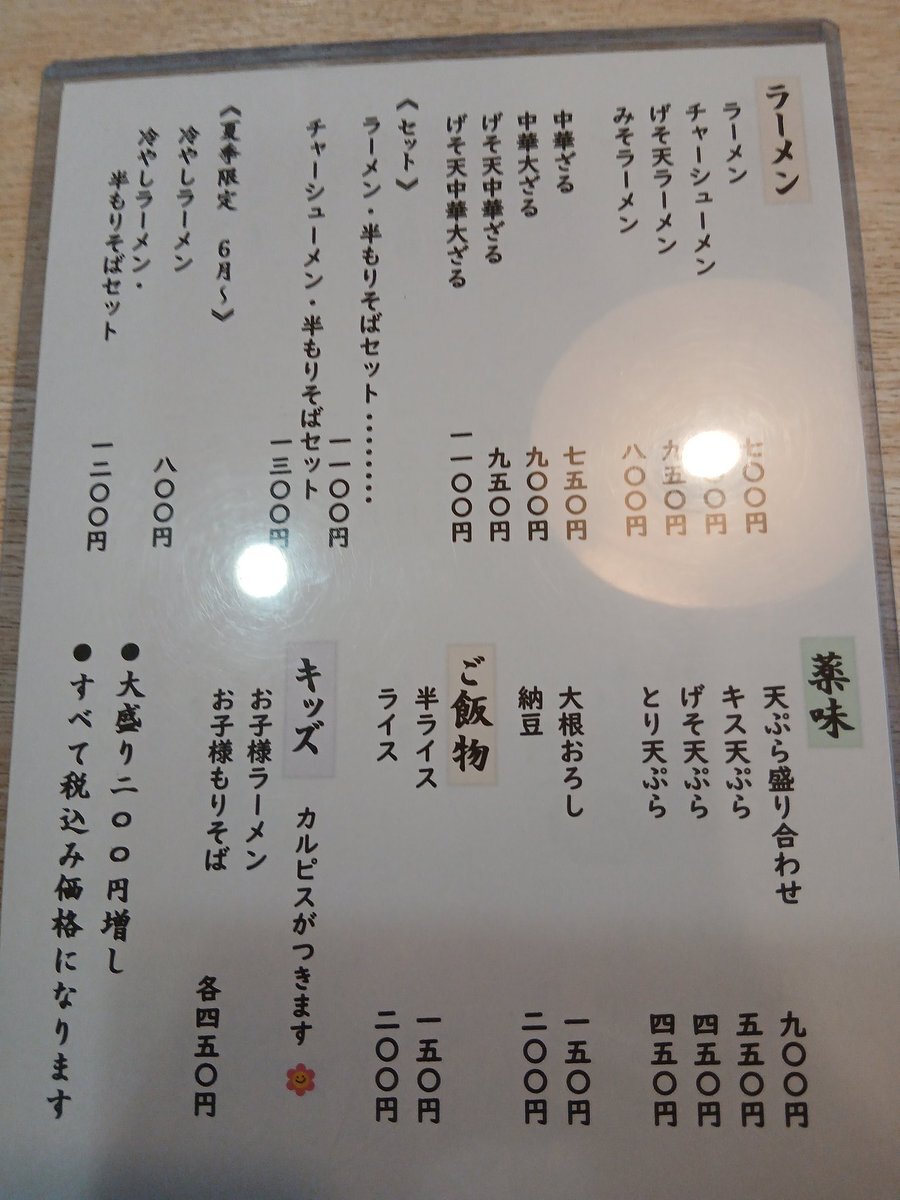 ラーメン
ラーメン 七〇〇円
チャーシューメン 〇〇円
げそ天ラーメン 九五〇円
みそラーメン 八〇〇円
中華ざる 七五〇円
中華大ざる 九〇〇円
げそ天中華ざる 九五〇円
げそ天中華大ざる 一一〇〇円
《セット》
ラーメン・半もりそばセット・・・・・・・ 一一〇〇円
チャーシューメン・半もりそばセット 一三〇〇円
《夏季限定 6月～》
冷やしラーメン 八〇〇円
冷やしラーメン・
半もりそばセット 一二〇〇円
薬味
天ぷら盛り合わせ 九〇〇円
キス天ぷら 五五〇円
げそ天ぷら 四五〇円
とり天ぷら 四五〇円
大根おろし 一五〇円
納豆 二〇〇円
ご飯物
半ライス 一五〇円
ライス 二〇〇円
キッズ カルピスがつきます
お子様ラーメン
お子様もりそば 各四五〇円
●大盛り二〇〇円増し
●すべて税込み価格になります